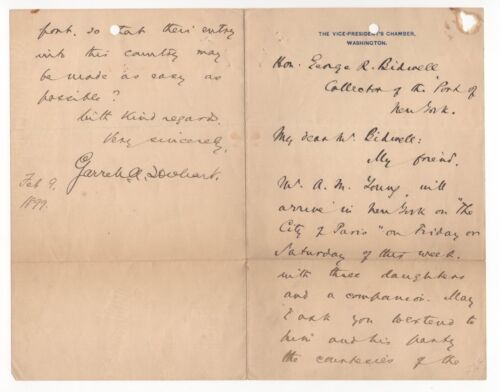 THE VICE-PRESIDENT'S CHAMBER,
WASHINGTON.
Hon. George R. Bidwell
Collector of the Port of
New York.
My dear Mr Bidwell:
My friend,
Mr. A. M. Young, will
arrive in New York on "The
City of Paris" on Friday or
Saturday of this week.
with three daughters
and a companion. May
I ask you to extend to
him and his party
the courtesies of the
port, so that their entry
into this country may
be made as easy as
possible?
With kind regards,
Very sincerely,
Garret A. Hobart.
Feb 9.
1899.